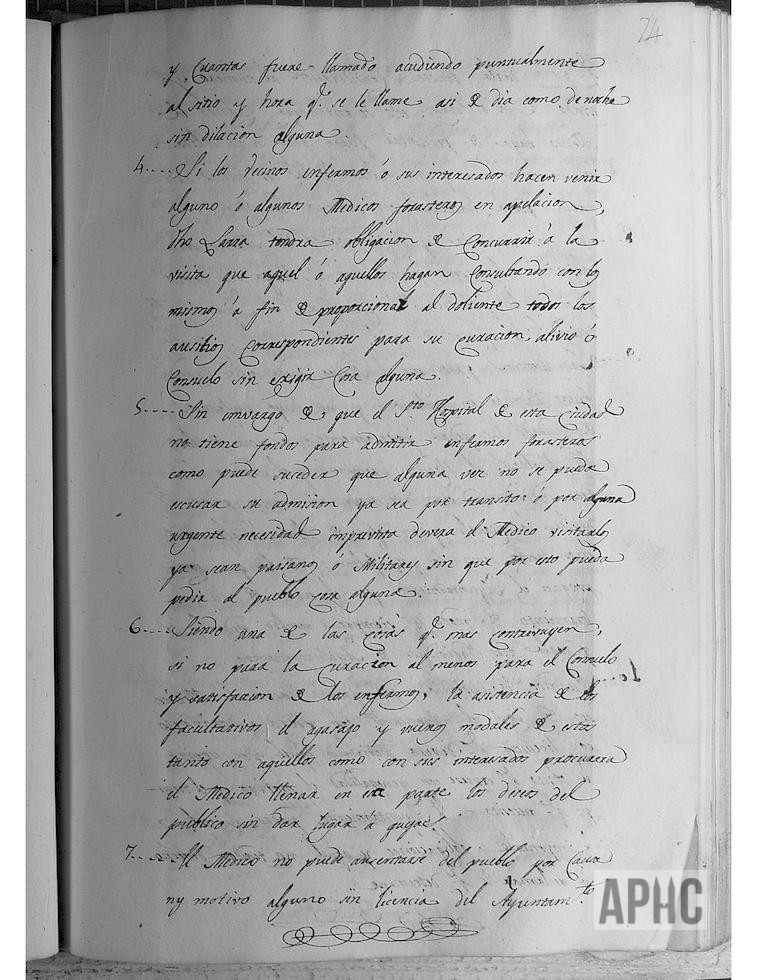 74
y Cuantas fuere llamado acudiendo puntualmente
al sitio y hora q.e se le llame asi de dia como de noche
sin dilacion alguna.
4.... Si los Vecinos enfermos ó sus interesados hacen venir
alguno ó algunos Medicos forasteros en apelacion,
dho Larra tendra obligacion de Concurrir á la
visita que aquel ó aquellos hagan Consultando con los
mismos á fin de proporcionar al doliente todos los
ausilios Correspondientes para su curacion, alivio ó
Consuelo sin exigir Cosa alguna.
5.... Sin embargo de que el S.to Hospital de esta ciudad
no tiene fondos para admitir enfermos forasteros
como puede suceder que alguna vez no se pueda
escusar su admision ya sea por transito ó por alguna
urgente necesidad imprevista devera el Medico visitarlos
ya sean paisanos ó Militares sin que por esto pueda
pedir al pueblo cosa alguna.
6.... Siendo una de las cosas q.e mas contribuyen,
si no para la curacion al menos para el Consuelo
y satisfaccion de los enfermos, la asistencia de los
facultativos el agasajo y buenos modales de estos
tanto con aquellos como con sus interesados procurara
el Medico llenar en esta parte los deseos del
publico sin dar lugar a quejas.
7.... El Medico no puede ausentarse del pueblo por Causa
ny motivo alguno sin licencia del Ayuntam.to
APHC